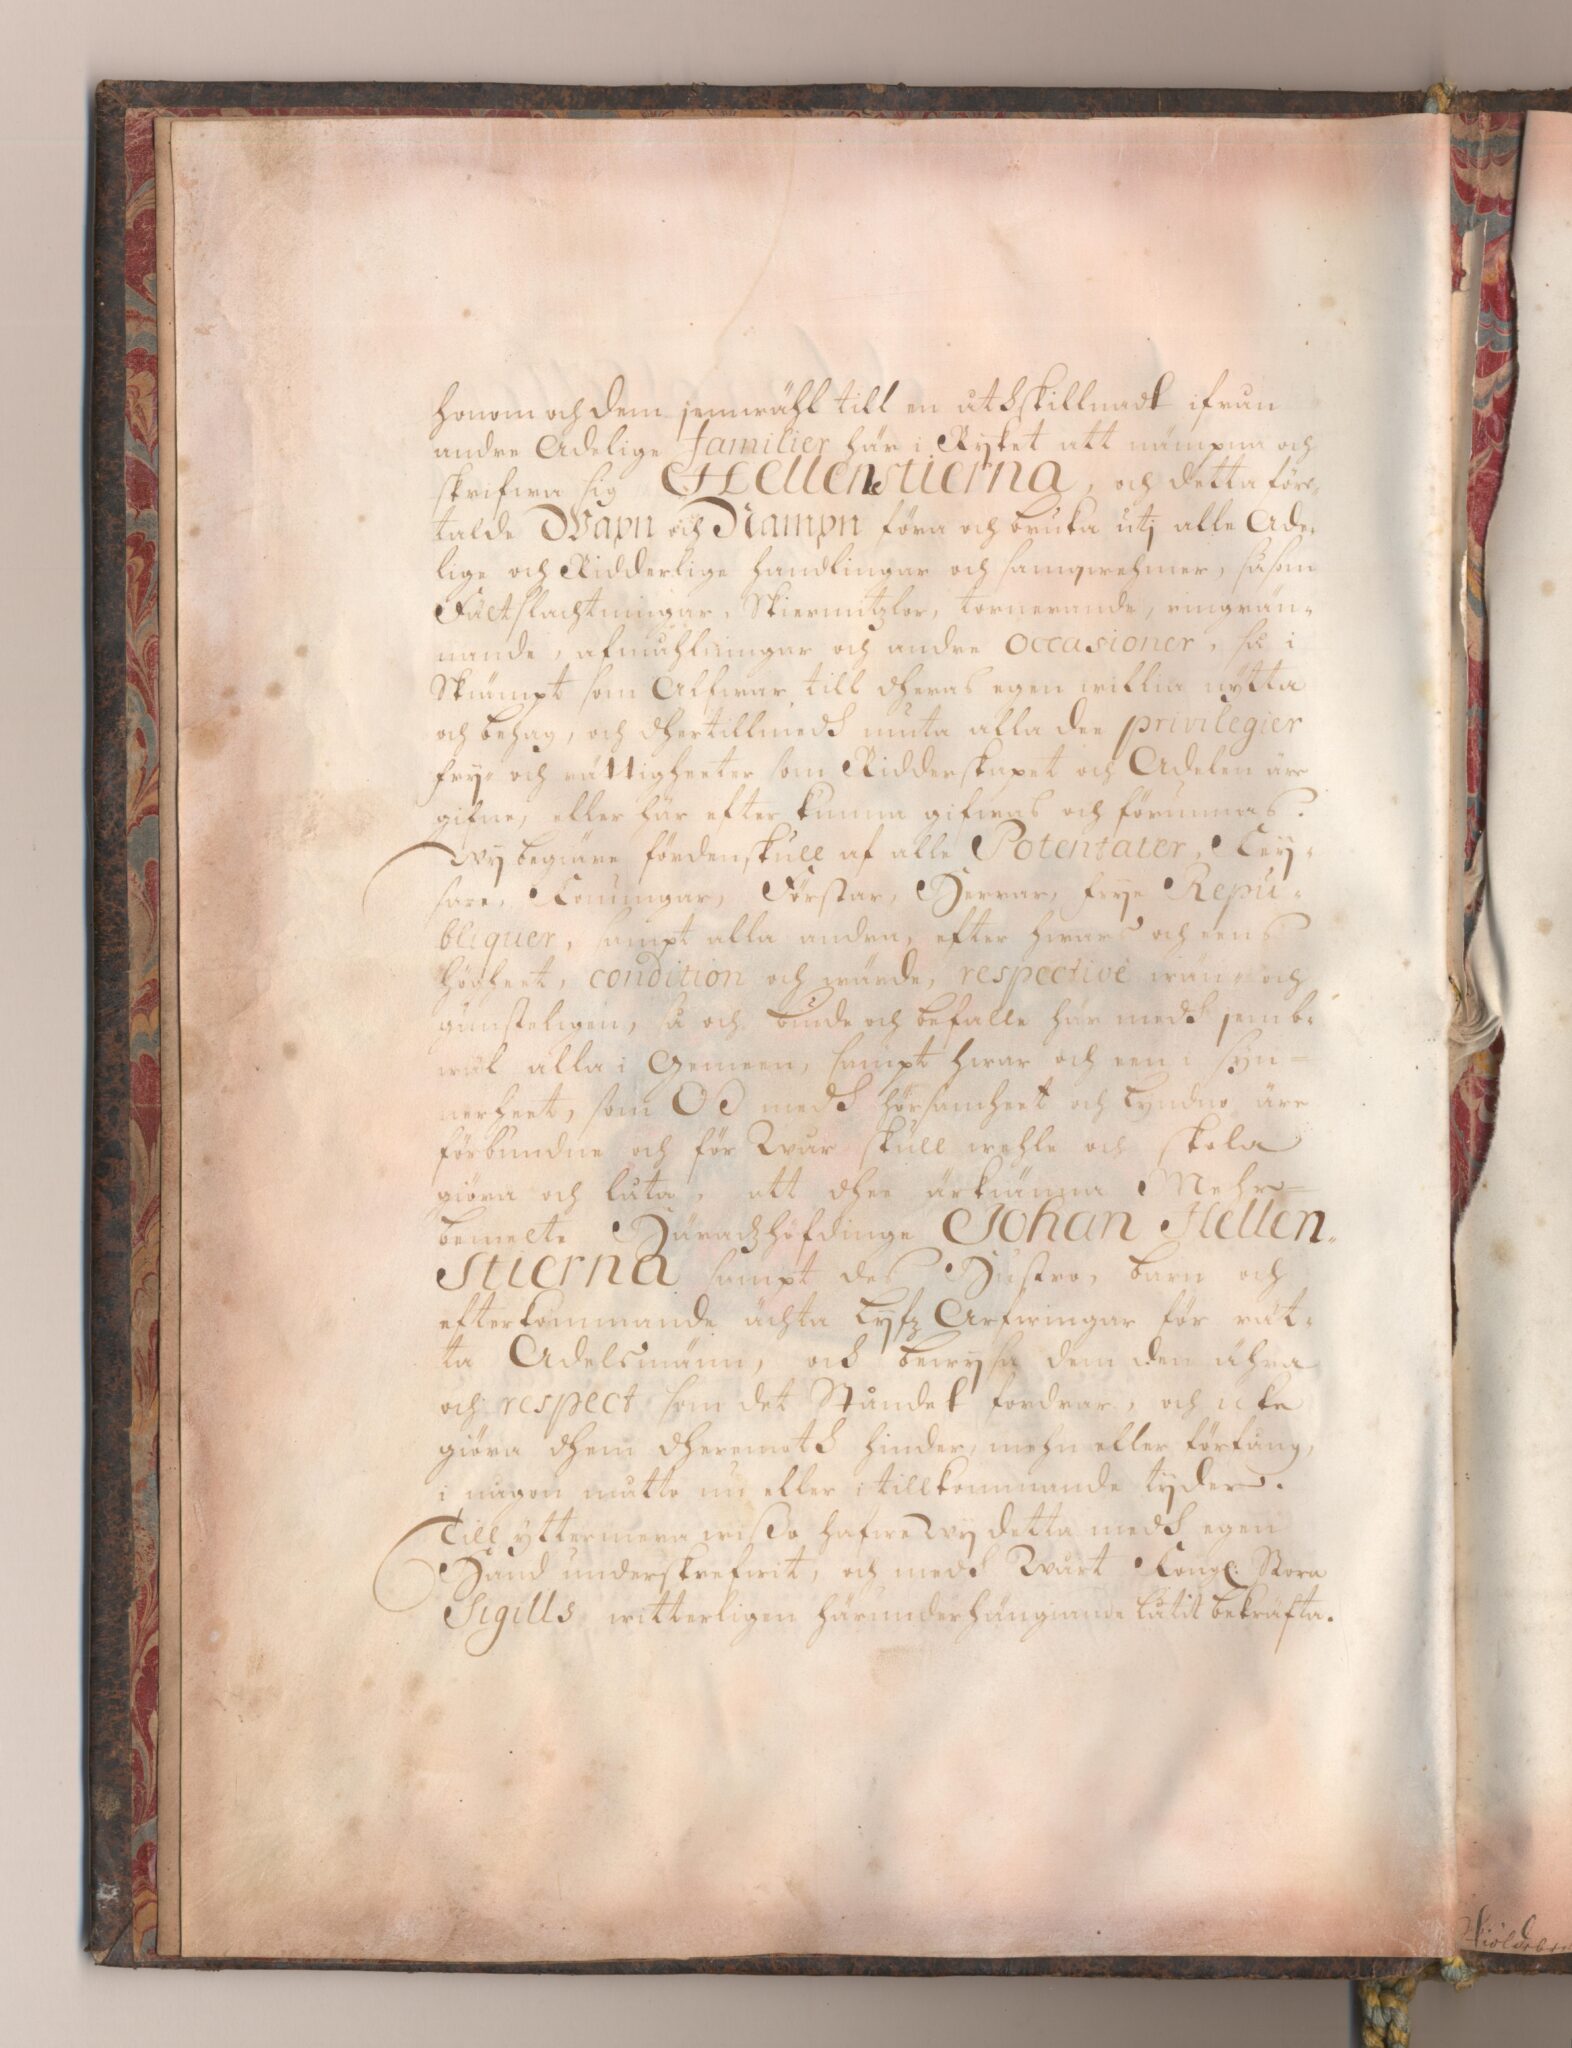 honom och dem jemwähl till en åthskillnadt ifrån
andre Adelige familier här i Ryket att nämpna och
skrifwa sig Hellenstierna, och detta före-
talde Wapn och Nampn föra och bruka utj alle Ade-
lige och Ridderlige handlingar och samqwehmer, såsom
Fältslachtningar, Skiermützlor, tornerande, ringrän-
nande, afmåhlningar och andre occasioner, så i
Skiämpt som Alfwar, till dheras egen willia nytta
och behag, och dhertillmedh niuta alla dee privilegier
fry- och rättigheeter som Ridderskapet och Adelen äre
gifne, eller här efter kunna gifwas och förunnas.
Wy begiäre fördenskull af alle Potentater, Key-
sare, Konungar, Förstar, Herrar, frye Repu-
bliquer, sampt alla andra, efter hwars och eens
högheet, condition och wärde, respective wän- och
gunsteligen, så och biude och befalle här medh jemb-
wäl alla i Gemeen, sampt hwar och een i syn-
nerheet, som Oß medh hörsamheet och Lyndno äre
förbundne och för Wår skull wehle och skola
giöra och låta, att dhee ärkiänna Mehr-
bemelte Häradzhöfdinge Johan Hellen-
Stierna sampt des Hustro, barn och
efterkommande ächta Lyfz Arfwingar för rät-
ta Adelsmänn, och bewysa dem den ähra
och respect som det Ståndet fordrar, och icke
giöra dhem dheremoth hinder, mehn eller förfång,
i någon motto nu eller i tillkommande tyder.
Till yttermera wißo hafwe Wy detta medh egen
Hand underskrefwit, och medh Wårt Kongl: Stora
Sigills witterligen härunderhängiande låtit bekräfta.